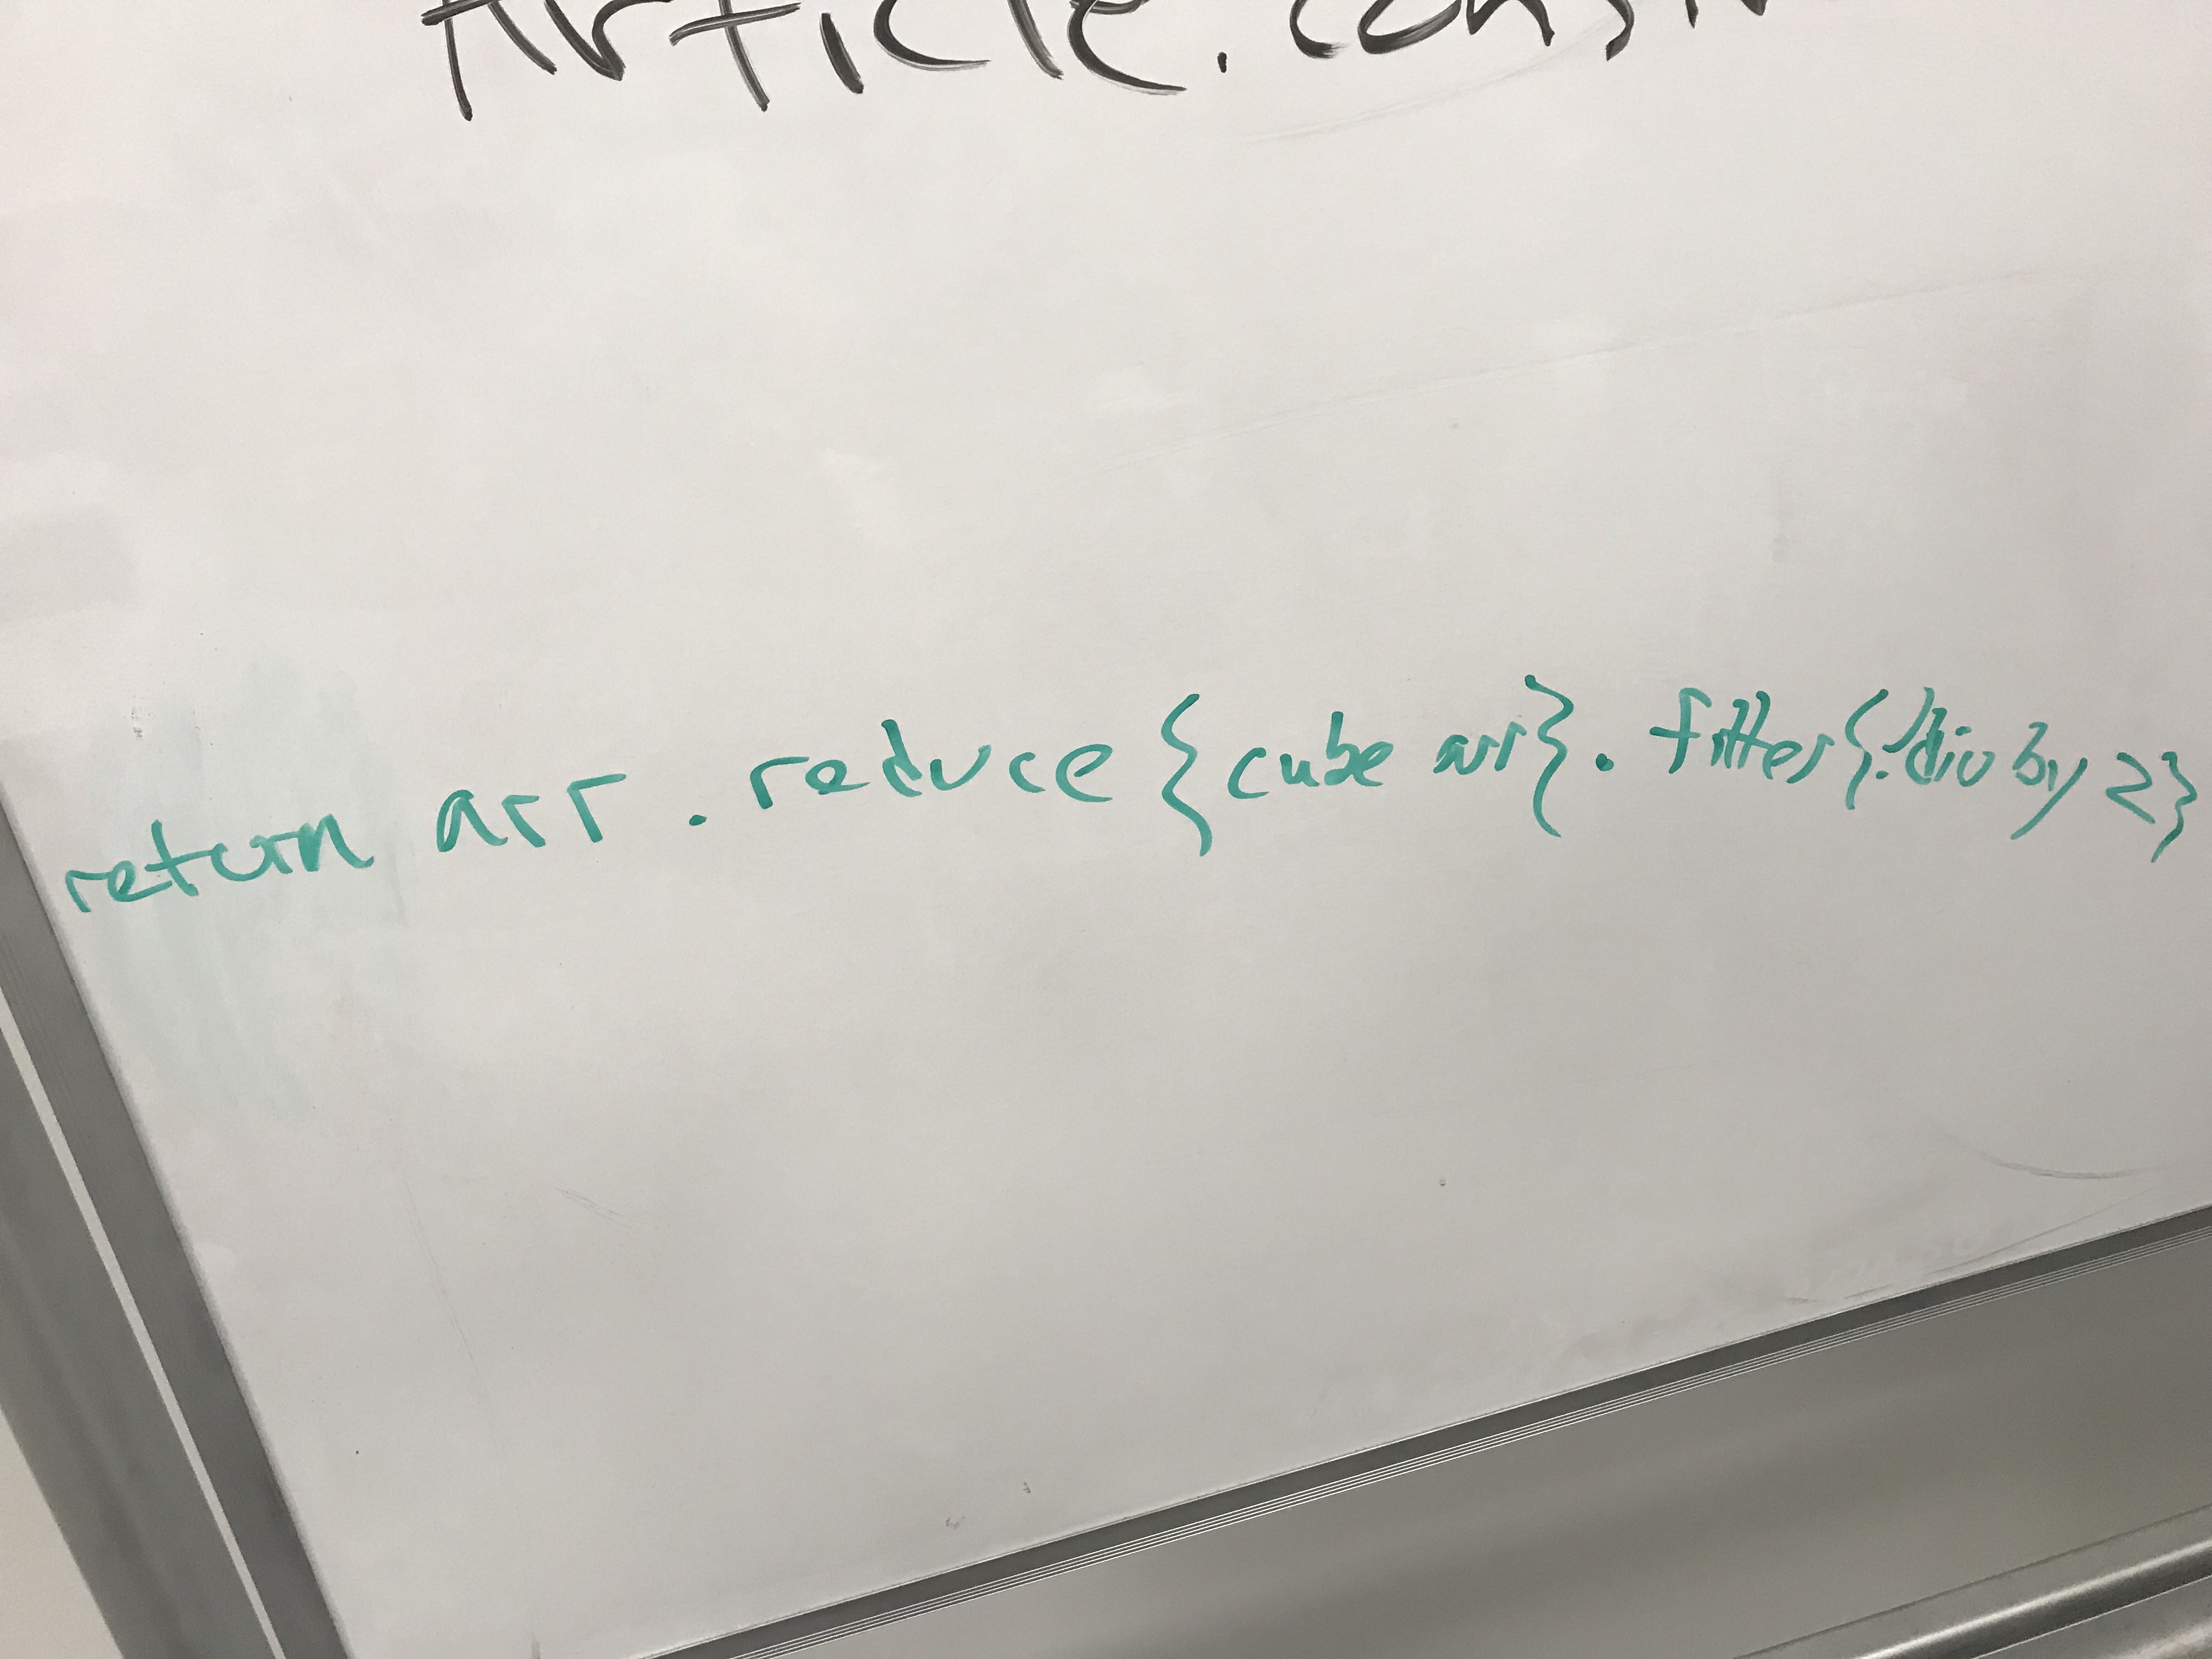 Article.const
return arr . reduce {cube arr}. filter{!div by 2}